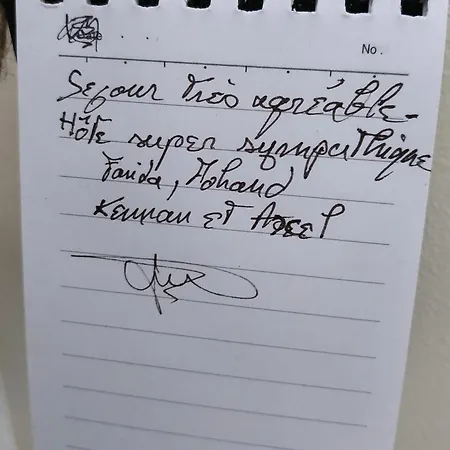 No.
Sejour très agréable-
Hôte super sympathique
Farida, Mohand
Kennan et Aseel